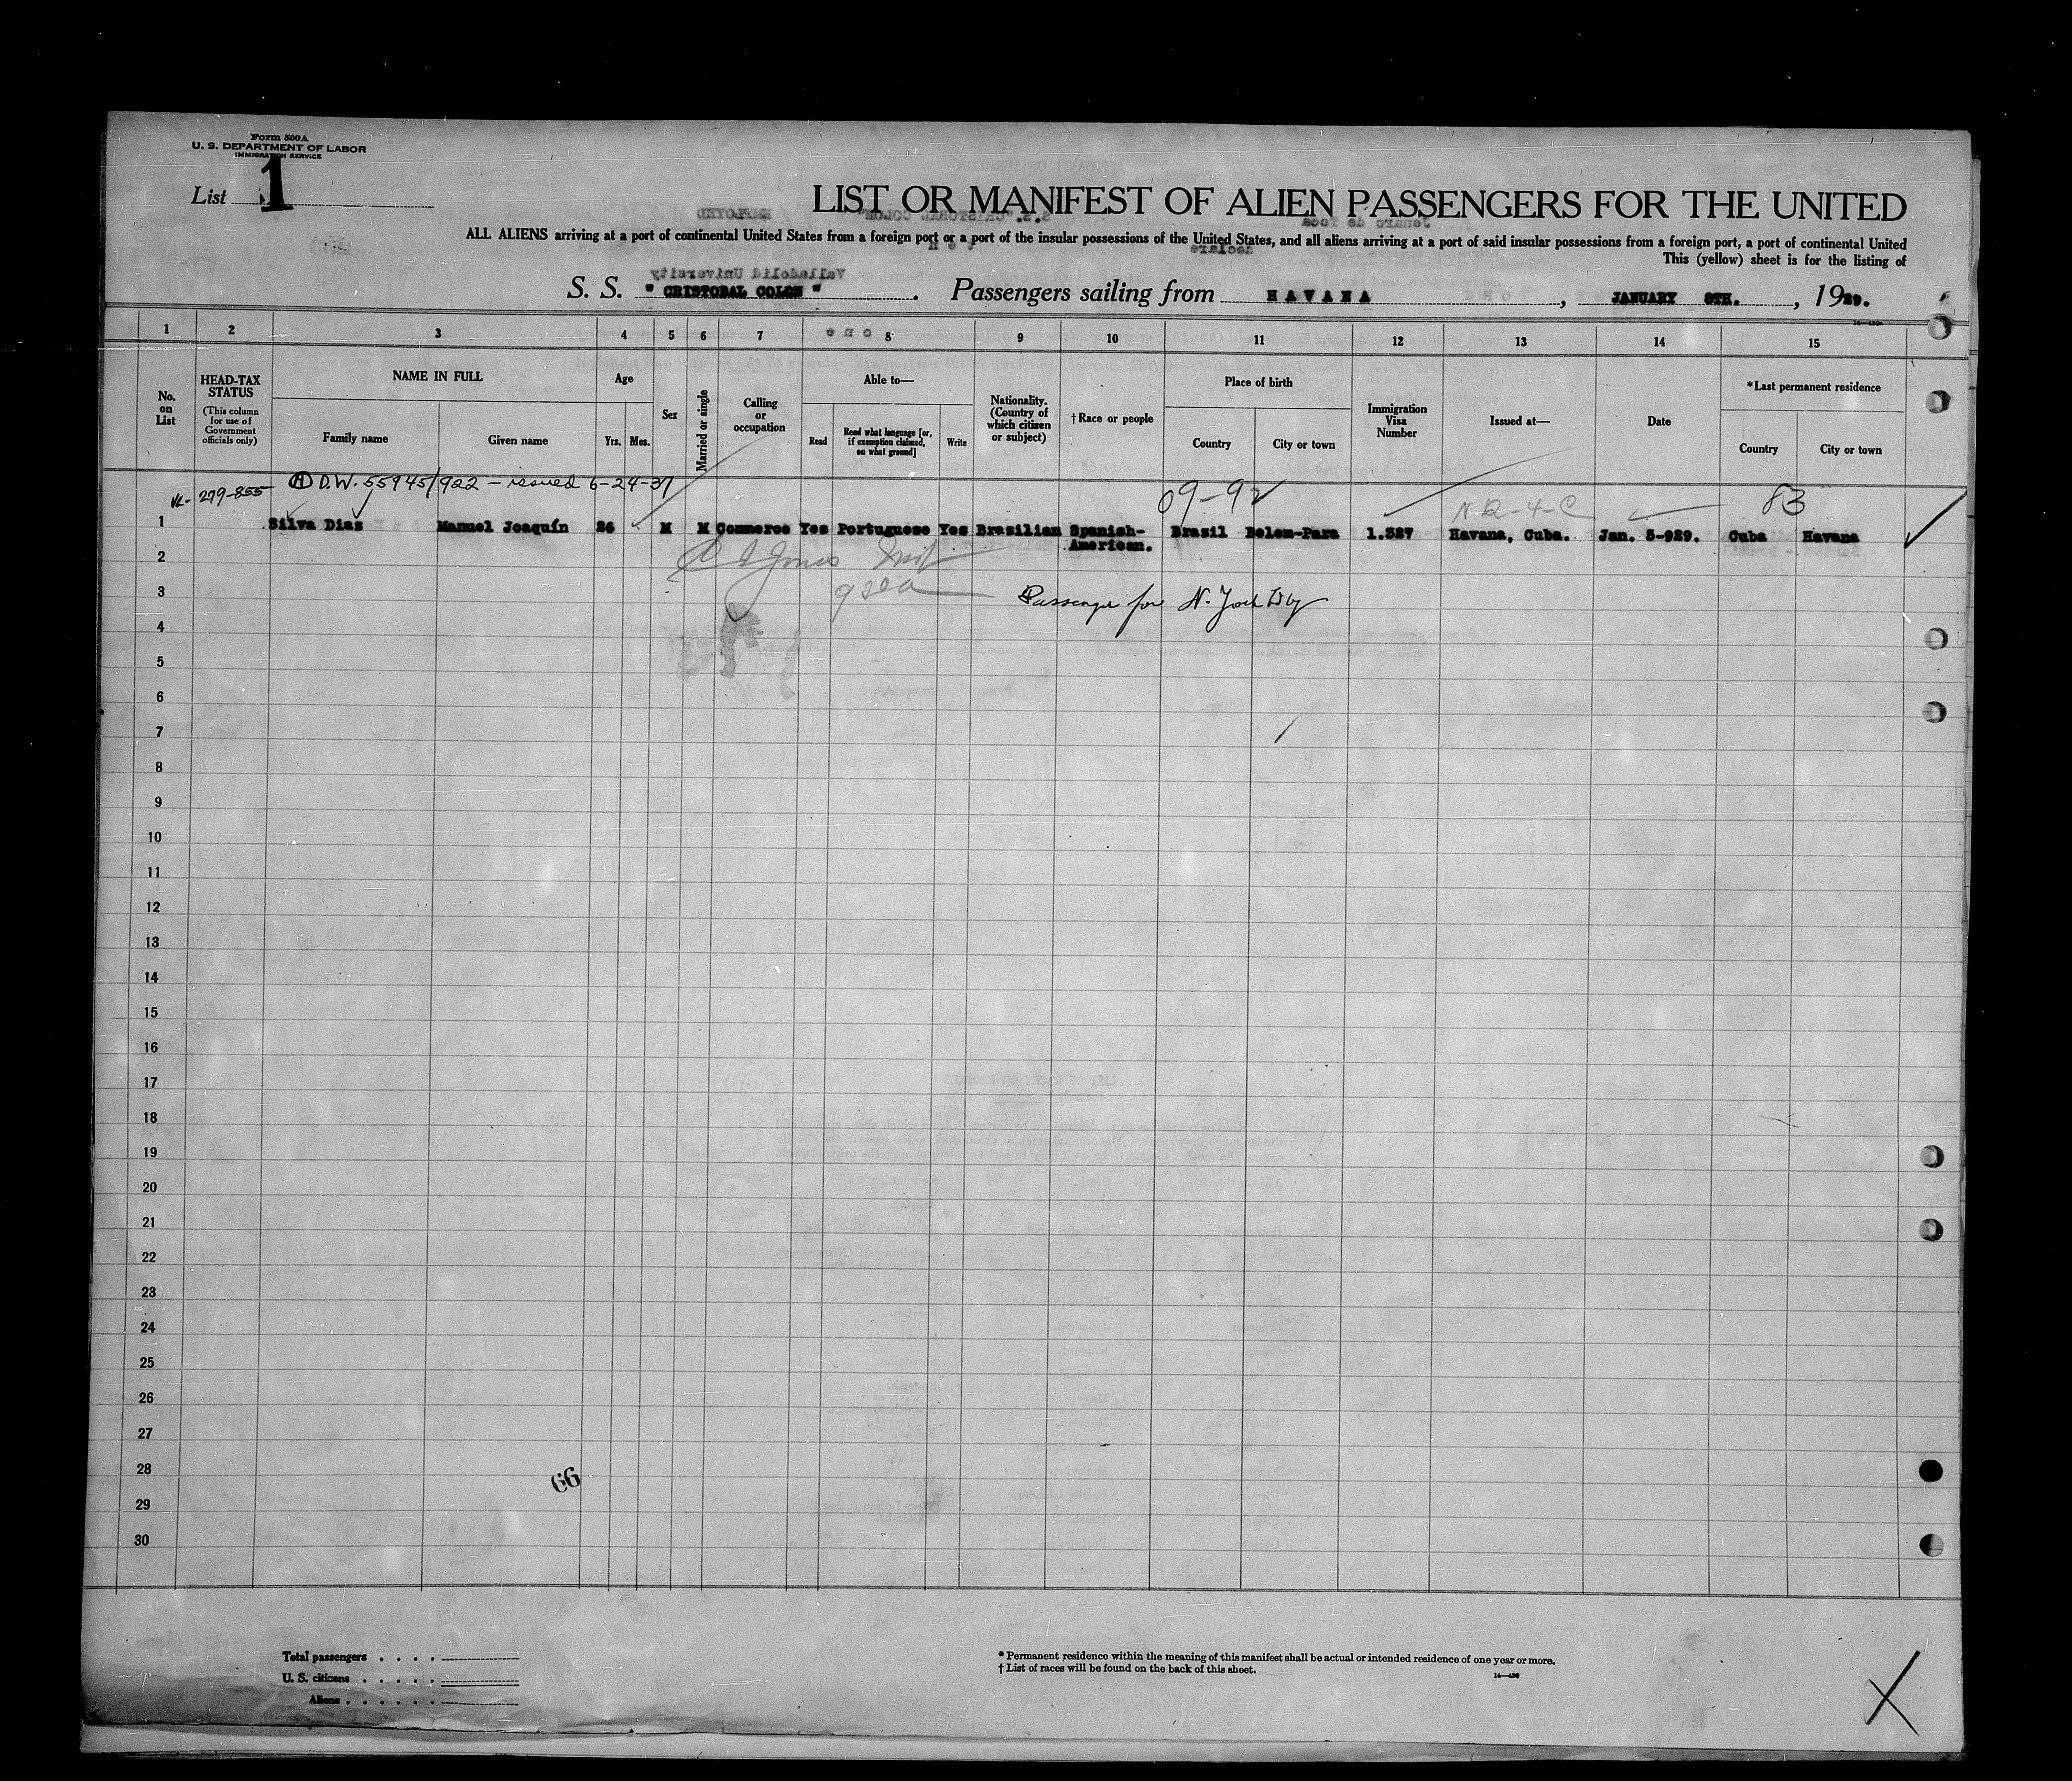 Form 500A
U. S. DEPARTMENT OF LABOR
IMMIGRATION SERVICE
List 1
LIST OR MANIFEST OF ALIEN PASSENGERS FOR THE UNITED
ALL ALIENS arriving at a port of continental United States from a foreign port or a port of the insular possessions of the United States, and all aliens arriving at a port of said insular possessions from a foreign port, a port of continental United
This (yellow) sheet is for the listing of
S. S. " CRISTOBAL COLON " . Passengers sailing from HAVANA , JANUARY 8TH. , 1929.
1 2 3 4 5 6 7 8 9 10 11 12 13 14 15
No. on List
HEAD-TAX STATUS
(This column for use of Government officials only)
NAME IN FULL
Family name
Given name
Age
Yrs. Mos.
Sex
Married or single
Calling or occupation
Able to—
Read
Read what language [or, if exemption claimed, on what ground]
Write
Nationality. (Country of which citizen or subject)
†Race or people
Place of birth
Country
City or town
Immigration Visa Number
Issued at—
Date
*Last permanent residence
Country
City or town
279-855 D.W. 55945/922 - issued 6-24-37
09-92
N.Q-4-C
83
1 Silva Dias Manuel Joaquín 26 M M Commerce Yes Portuguese Yes Brazilian Spanish-American. Brasil Belem-Para 1.527 Havana, Cuba. Jan. 5-929. Cuba Havana
2
3
Passenger for N. York
4
5
6
7
8
9
10
11
12
13
14
15
16
17
18
19
20
21
22
23
24
25
26
27
28
29
30
66
Total passengers
U. S. citizens
Aliens
* Permanent residence within the meaning of this manifest shall be actual or intended residence of one year or more.
† List of races will be found on the back of this sheet.
14—430